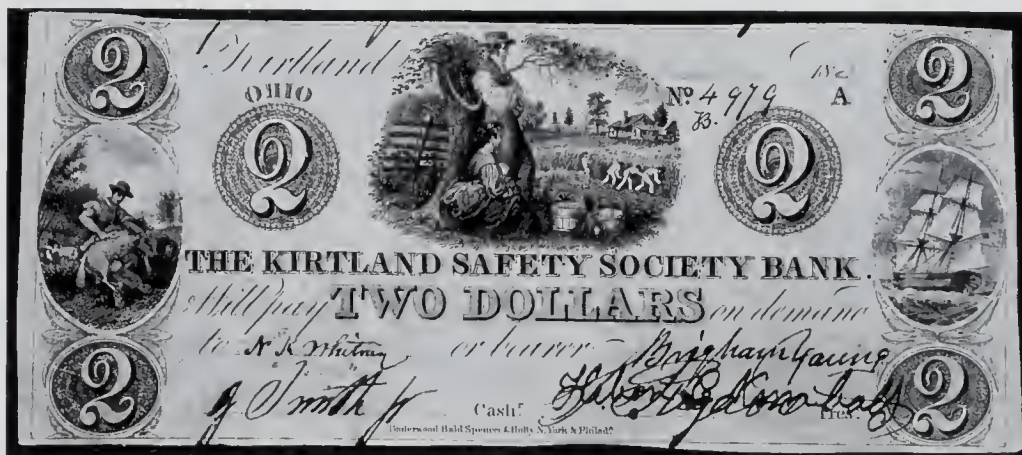 2 Kirtland 2
OHIO Nº 4979 A
B.
2 2
THE KIRTLAND SAFETY SOCIETY BANK.
Will pay TWO DOLLARS on demand
to N K Whitney or bearer Brigham Young
J Smith jr Cashr. Pres.
2 2
Underwood Bald Spencer & Hufty N. York & Philada.